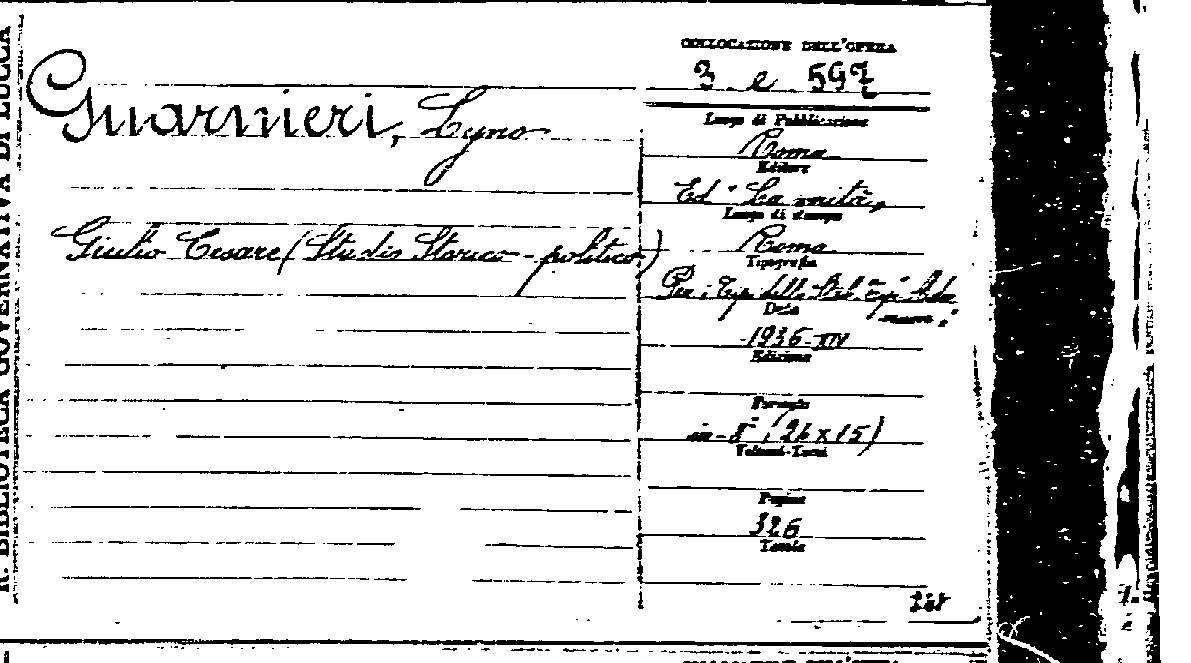 R. BIBLIOTECA GOVERNATIVA DI LUCCA
Guarnieri, Lyno
Giulio Cesare (Studio Storico-politico)
COLLOCAZIONE DELL'OPERA
3 e 597
Luogo di Pubblicazione
Roma
Editore
Ed. La
Luogo di stampa
Roma
Tipografia
Tip. dello Stab. Tip.
Data
1936-XIV
Edizione
Formato
in-8° (26x15)
Volumi-Tomi
Pagine
326
Tavole
COLLOCAZIONE DELL'OPERA